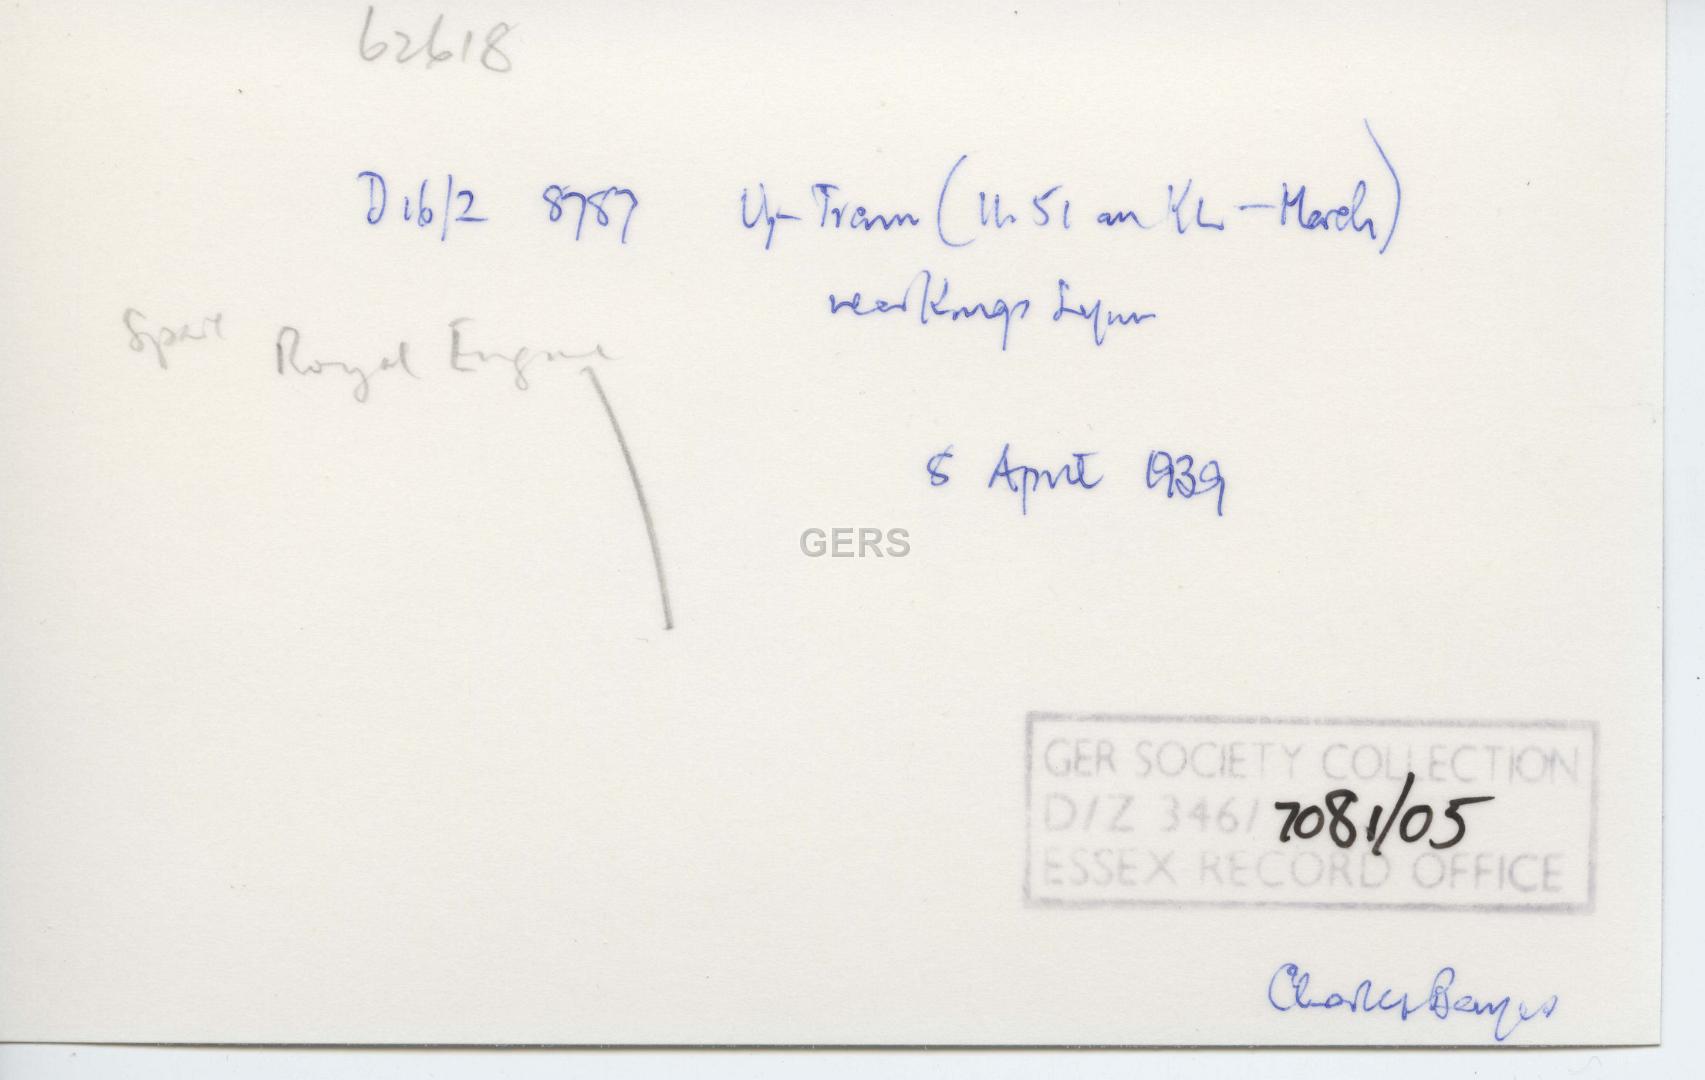 62618
D16/2 8787 Up Train (11.51 am KL - March)
near Kings Lynn
Spare Royal Engine
8 April 1939
GERS
GER SOCIETY COLLECTION
D/Z 346/ 7081/05
ESSEX RECORD OFFICE
Charles Bayes